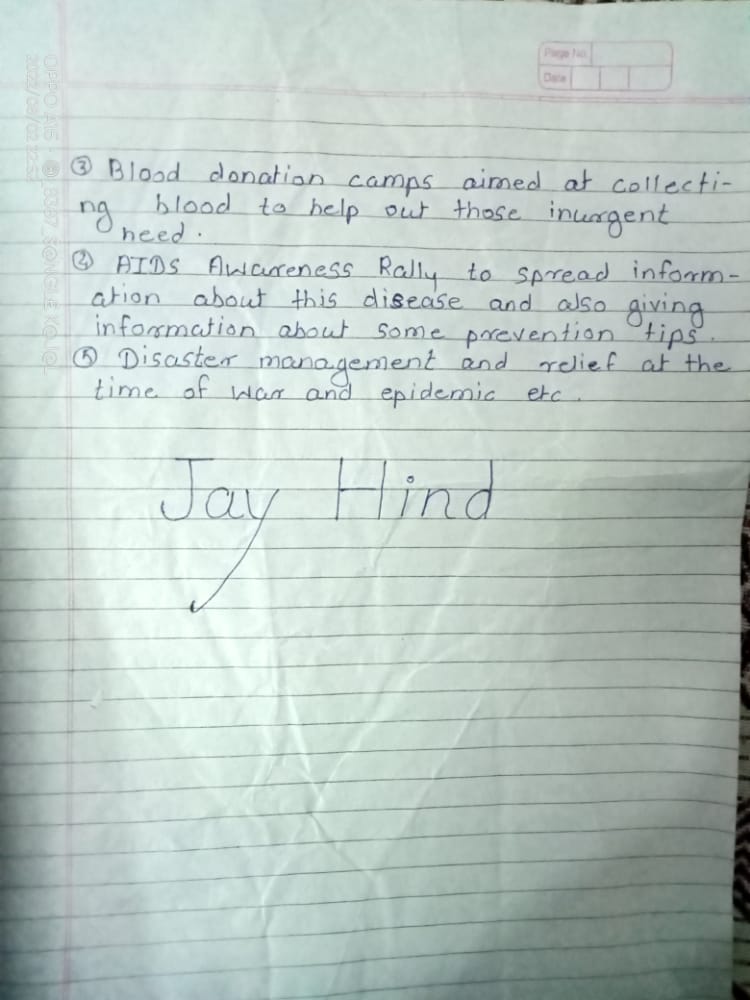 Page No.
Date
③ Blood donation camps aimed at collecti-
ng blood to help out those inurgent
need.
④ AIDS Awareness Rally to spread inform-
ation about this disease and also giving
information about some prevention tips.
⑤ Disaster management and relief at the
time of war and epidemic etc.
Jay Hind